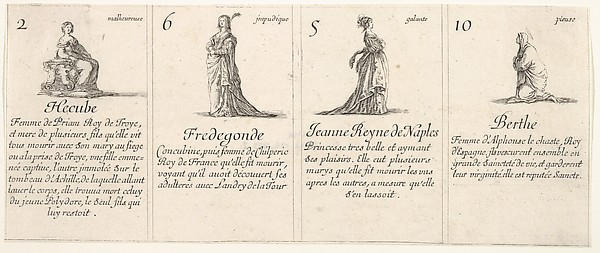 2 malheureuse
Hecube
Femme de Priam Roy de Troye,
et mere de plusieurs fils qu'elle vit
tous mourir avec son mary au siege
ou a la prise de Troye, une fille emme-
née captive, l'autre immolée sur le
tombeau d'Achille, de laquelle allant
laver le corps, elle trouva mort celuy
du jeune Polydore, le seul fils qui
luy restoit.
6 impudique
Fredegonde
Concubine, puis femme de Chilperic
Roy de France qu'elle fit mourir,
voyant qu'il avoit découvert ses
adulteres avec Landry de la Tour
5 galante
Jeanne Reyne de Naples
Princesse tres belle et aymant
ses plaisirs. Elle eut plusieurs
marys qu'elle fit mourir les uns
apres les autres, a mesure qu'elle
s'en lassoit.
10 pieuse
Berthe
Femme d'Alphonse le chaste, Roy
d'Espagne, ils vescurent ensemble en
grande Saincteté de vie, et garderent
leur virginité. elle est reputée Saincte.